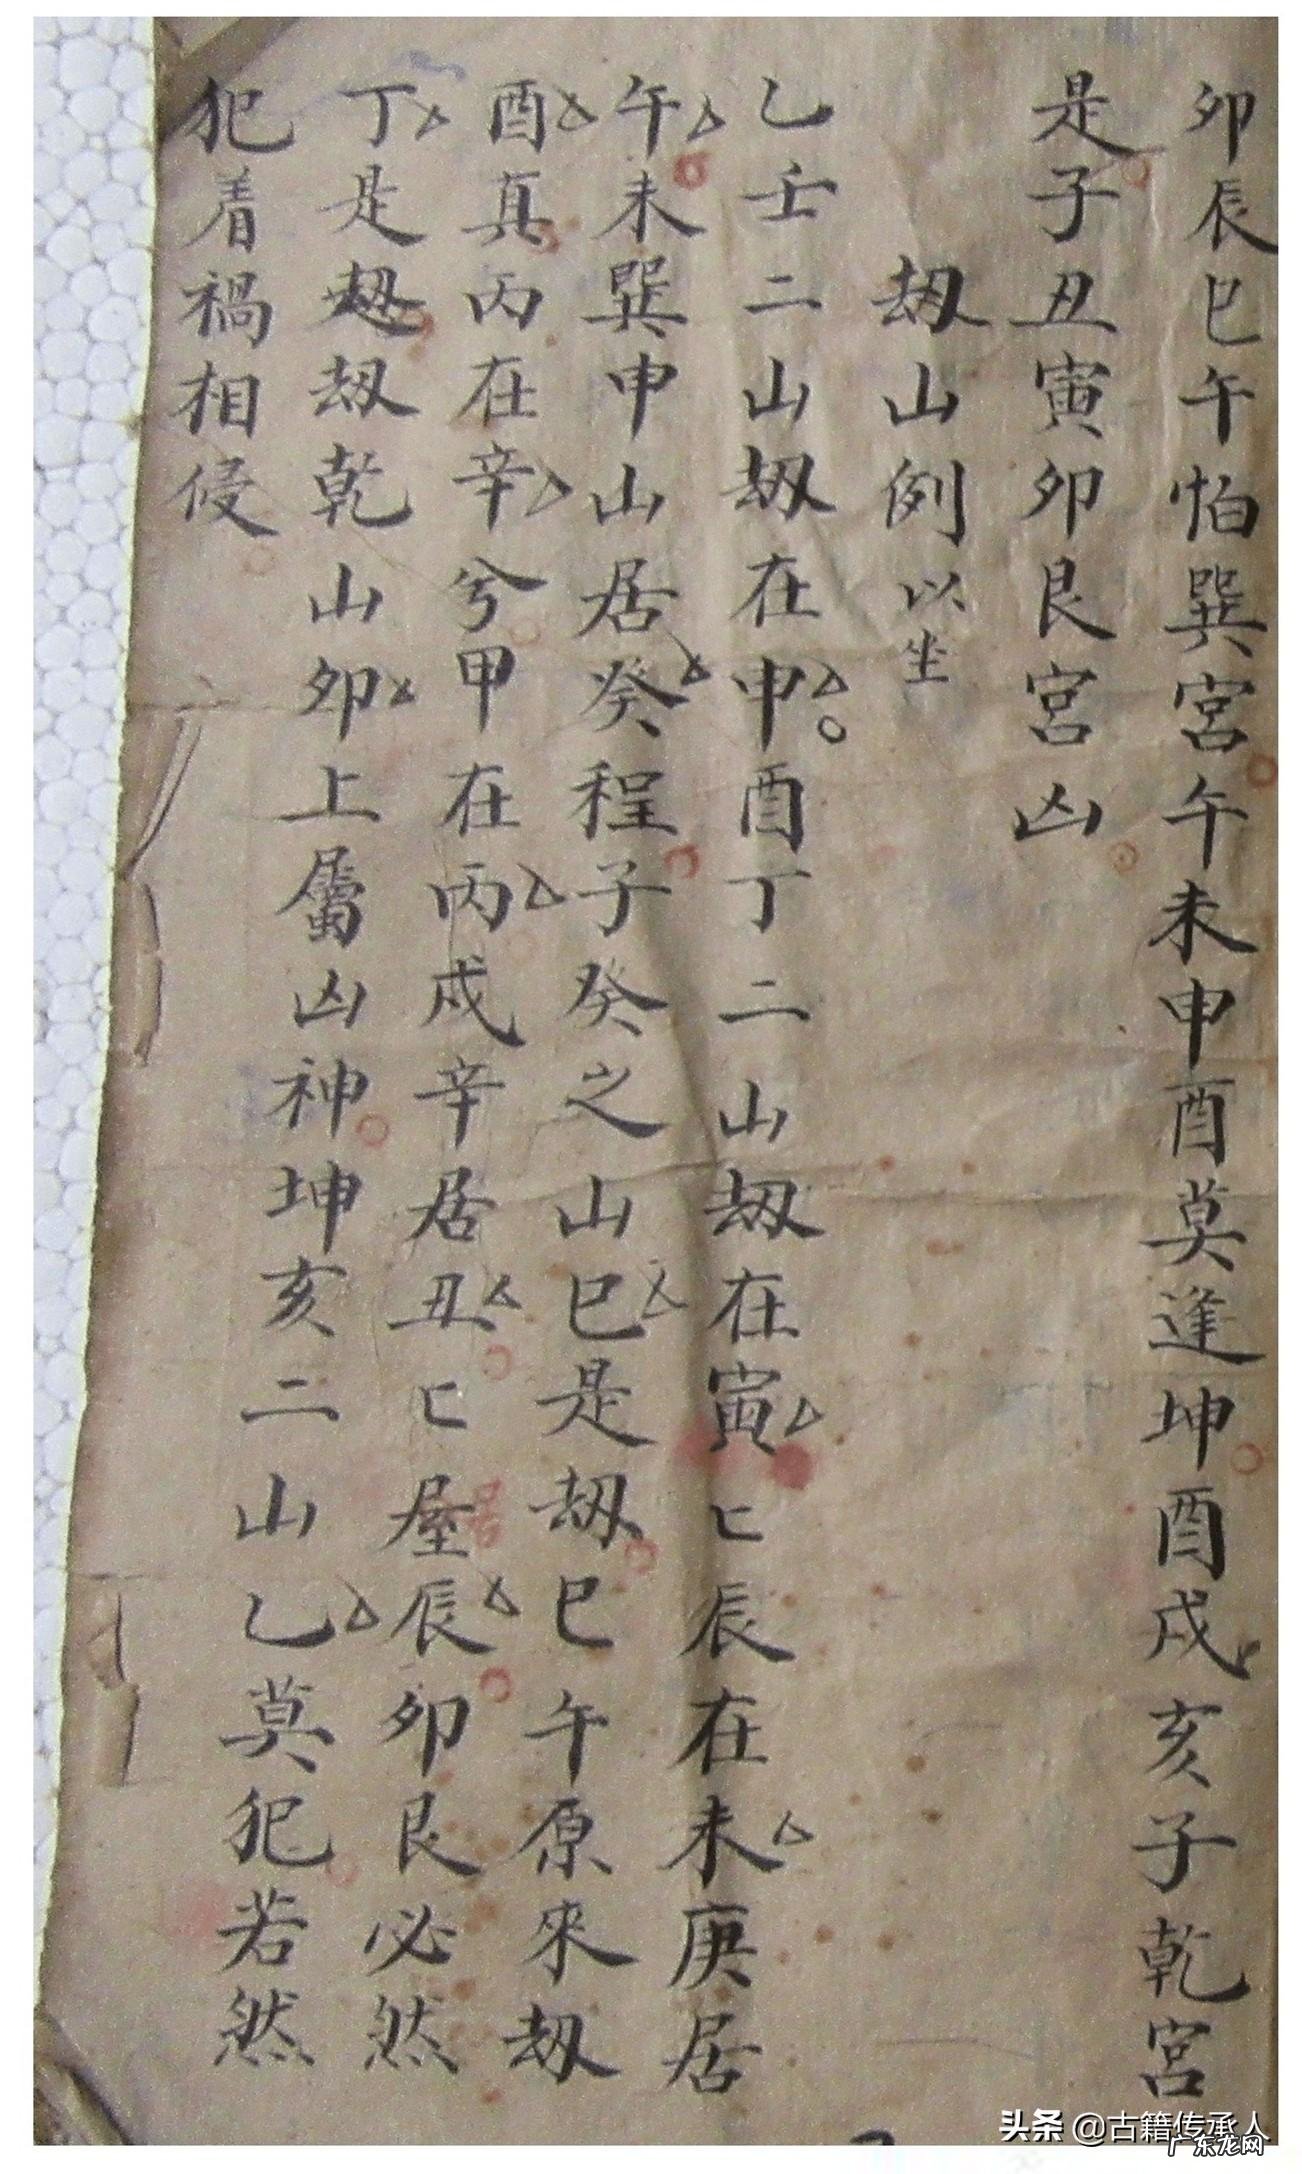 卯辰巳午怕巽宮午未申酉莫逢坤酉戌亥子乾宮
是子丑寅卯艮宮凶
刼山例以坐
乙壬二山刼在申酉丁二山刼在寅匕辰在未庚居
午未巽申山居癸程子癸之山巳是刼巳午原來刼
酉真丙在辛兮甲在丙戍辛居丑匕屋辰卯艮必然
丁是刼乾山卯上屬凶神坤亥二山乙莫犯若然
犯着禍相侵
头条 @古籍传承人
广东龙网